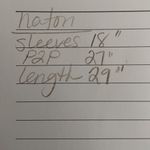 naton
sleeves 18"
P2P 27"
length 29"